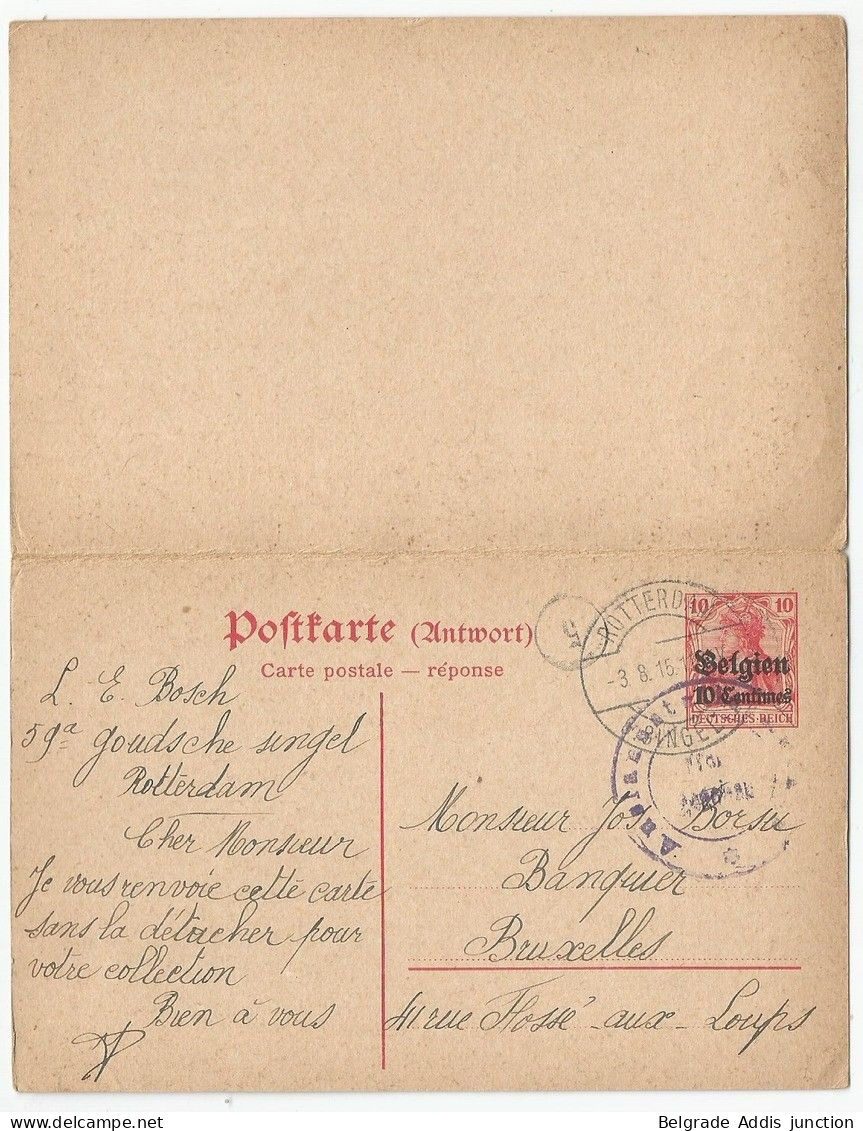 Postkarte (Antwort)
Carte postale — réponse
10 10
Belgien
10 Centimes
DEUTSCHES REICH
ROTTERDAM
-3.8.15.1
SINGEL
5
L. E. Bosch
59a goudsche singel
Rotterdam
Cher Monsieur
Je vous renvoie cette carte
sans la détacher pour
votre collection
Bien à vous
Monsieur Jos Borsu
Banquier
Bruxelles
41 rue Flossé-aux-Loups
Belgrade Addis junction